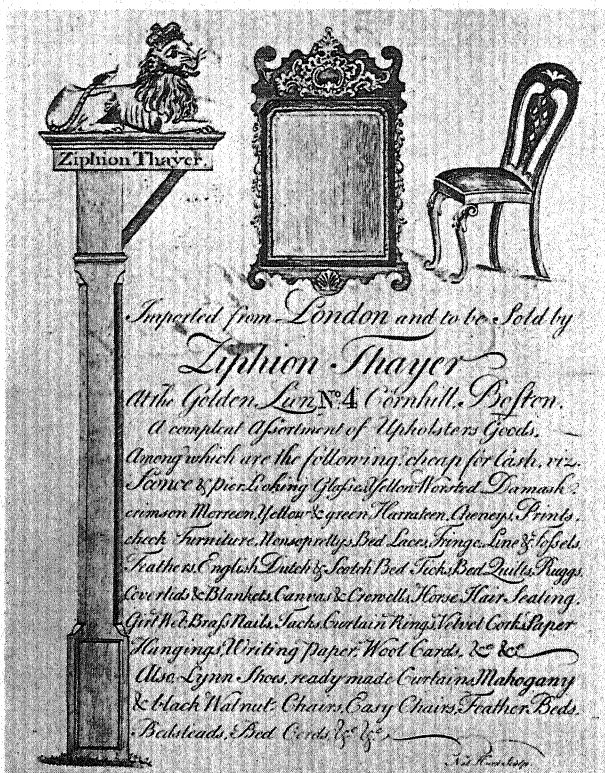 Ziphion Thayer.
Imported from London and to be Sold by
Ziphion Thayer
At the Golden Lion No. 4 Cornhill, Boston.
A compleat Assortment of Upholsters Goods,
Among which are the following, cheap for Cash, viz.
Sconce & pier Looking Glasses, Yellow Worsted Damask,
crimson Morreen, Yellow & green Harrateen, Cheneys, Prints,
check Furniture, Nonsoprettys, Bed Laces, Fringe, Line & Tossels,
Feathers, English, Dutch & Scotch Bed Ticks, Bed Quilts, Ruggs,
Coverlids & Blankets, Canvas & Crewells, Horse Hair Seating,
Girt Web, Brass Nails, Tacks, Curtain Rings, Velvet Corks, Paper
Hangings, Writing Paper, Wool Cards, &c &c
Also Lynn Shoes, ready made Curtains, Mahogany
& black Walnut Chairs, Easy Chairs, Feather Beds,
Bedsteads, Bed Cords &c &c
Sculp